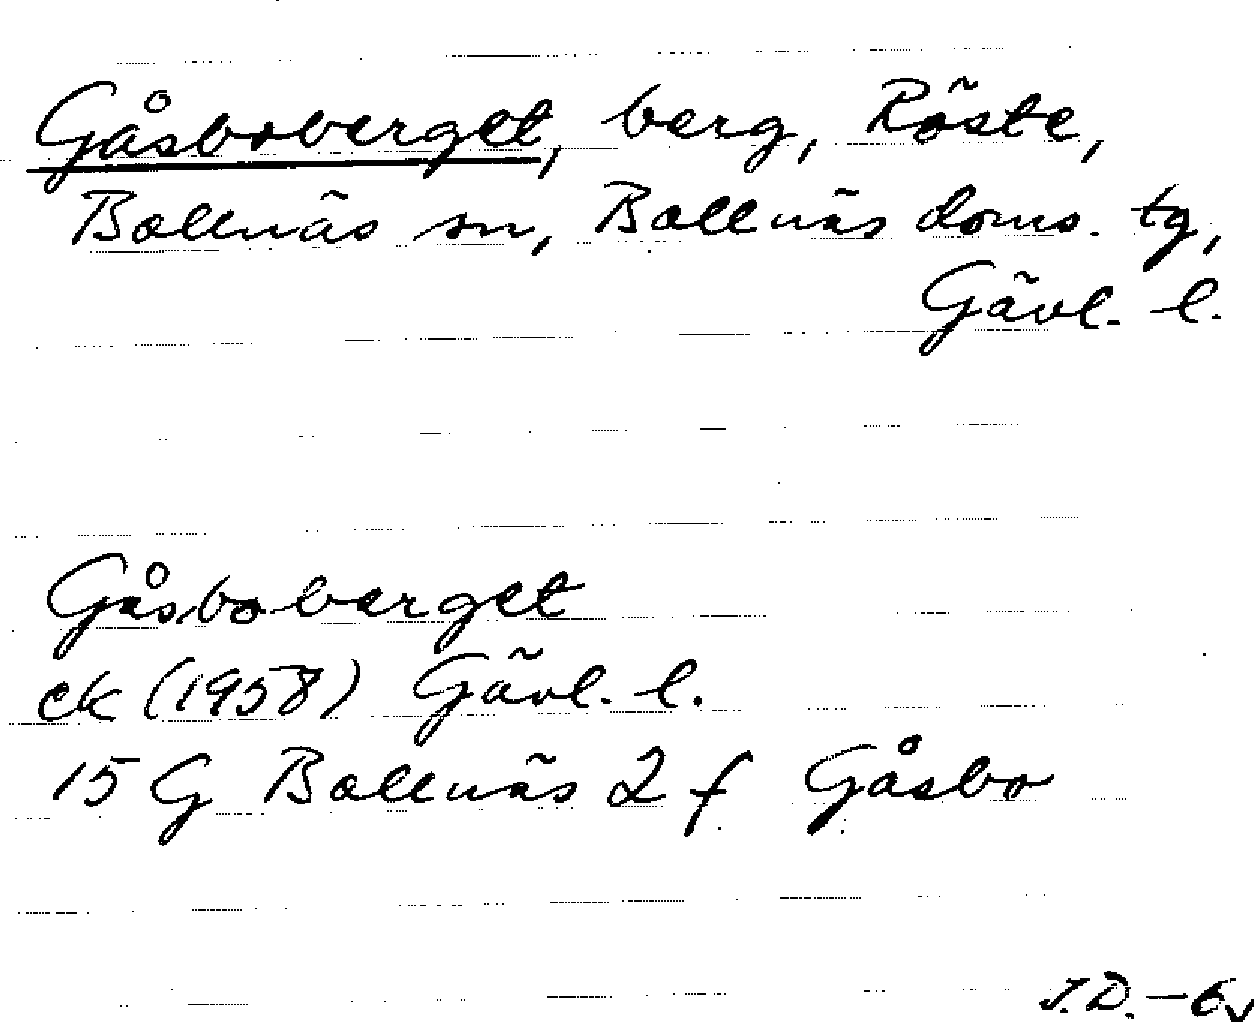 Gåsboberget, berg, Röste,
Bollnäs sn, Bollnäs doms. tg,
Gävl. l.
Gåsboberget
ek (1958) Gävl. l.
15 G Bollnäs 2 f Gåsbo
J.D. -6